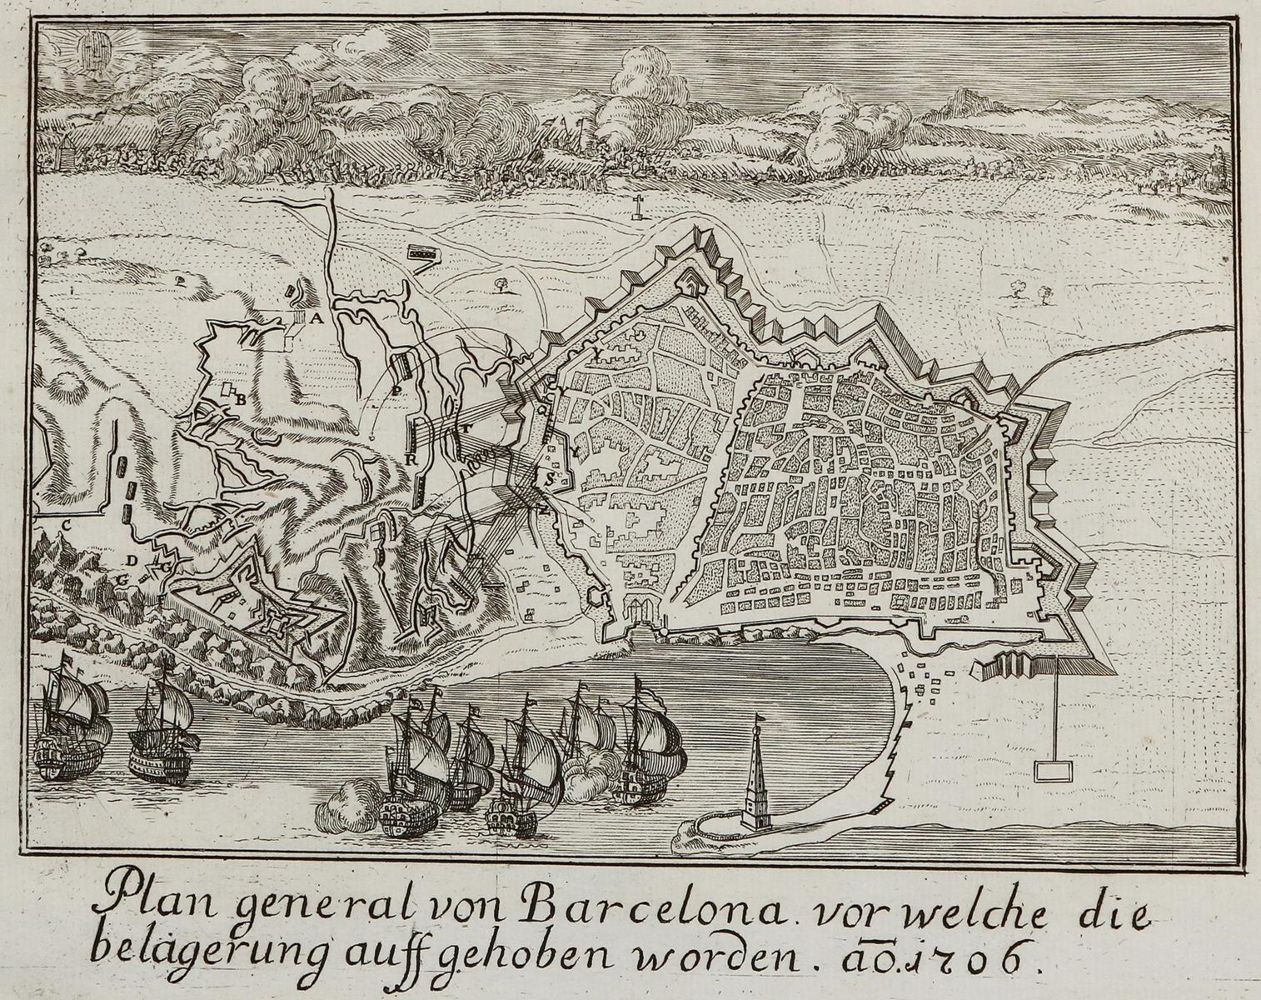 A
B
P
T
R
S
X
Y
Z
C
D
G
G
Plan general von Barcelona. vor welche die
belagerung auff gehoben worden. aō. 1706.